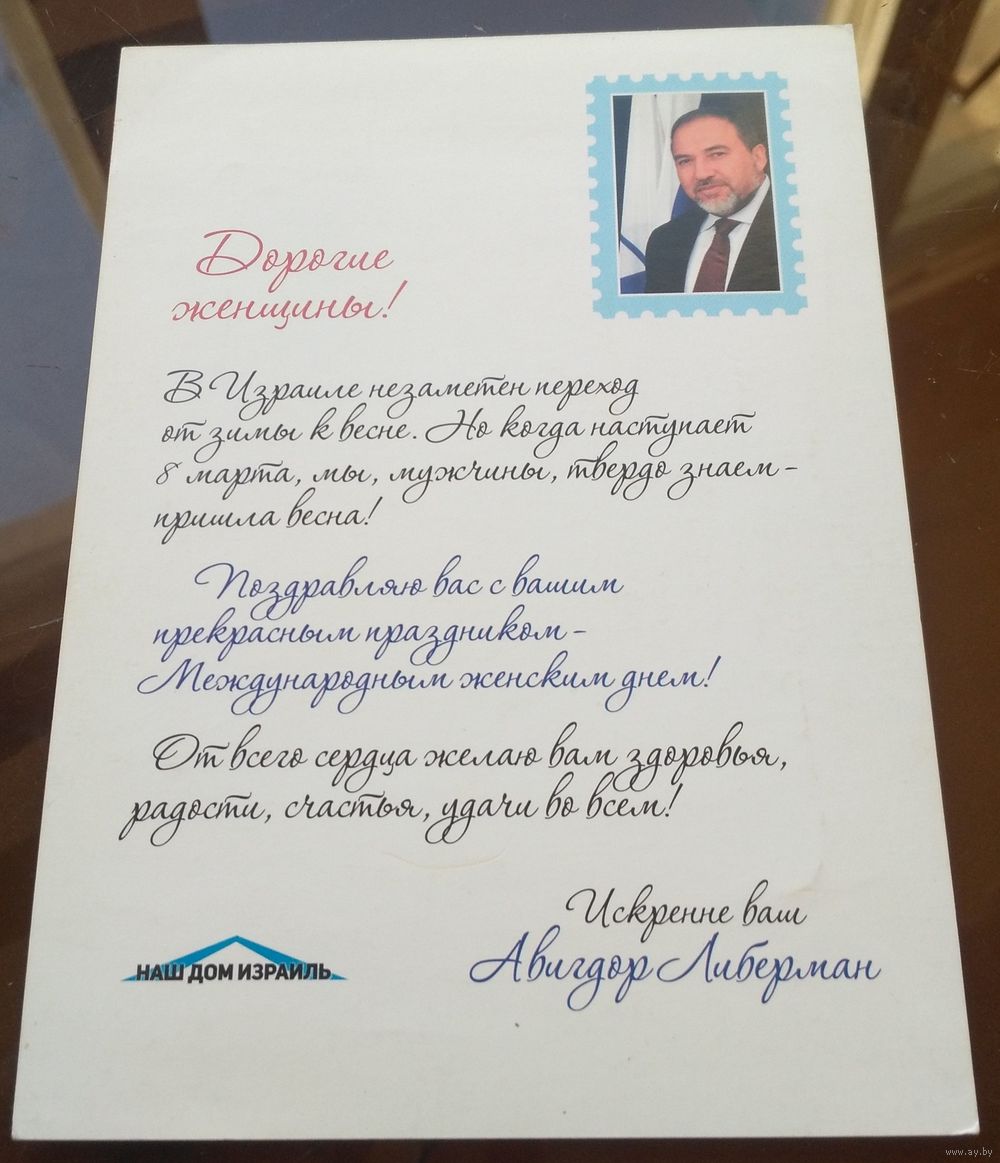 Дорогие
женщины!
В Израиле незаметен переход
от зимы к весне. Но когда наступает
8 марта, мы, мужчины, твердо знаем -
пришла весна!
Поздравляю вас с вашим
прекрасным праздником -
Международным женским днем!
От всего сердца желаю вам здоровья,
радости, счастья, удачи во всем!
Искренне ваш
Авигдор Либерман
НАШ ДОМ ИЗРАИЛЬ
www.ay.by